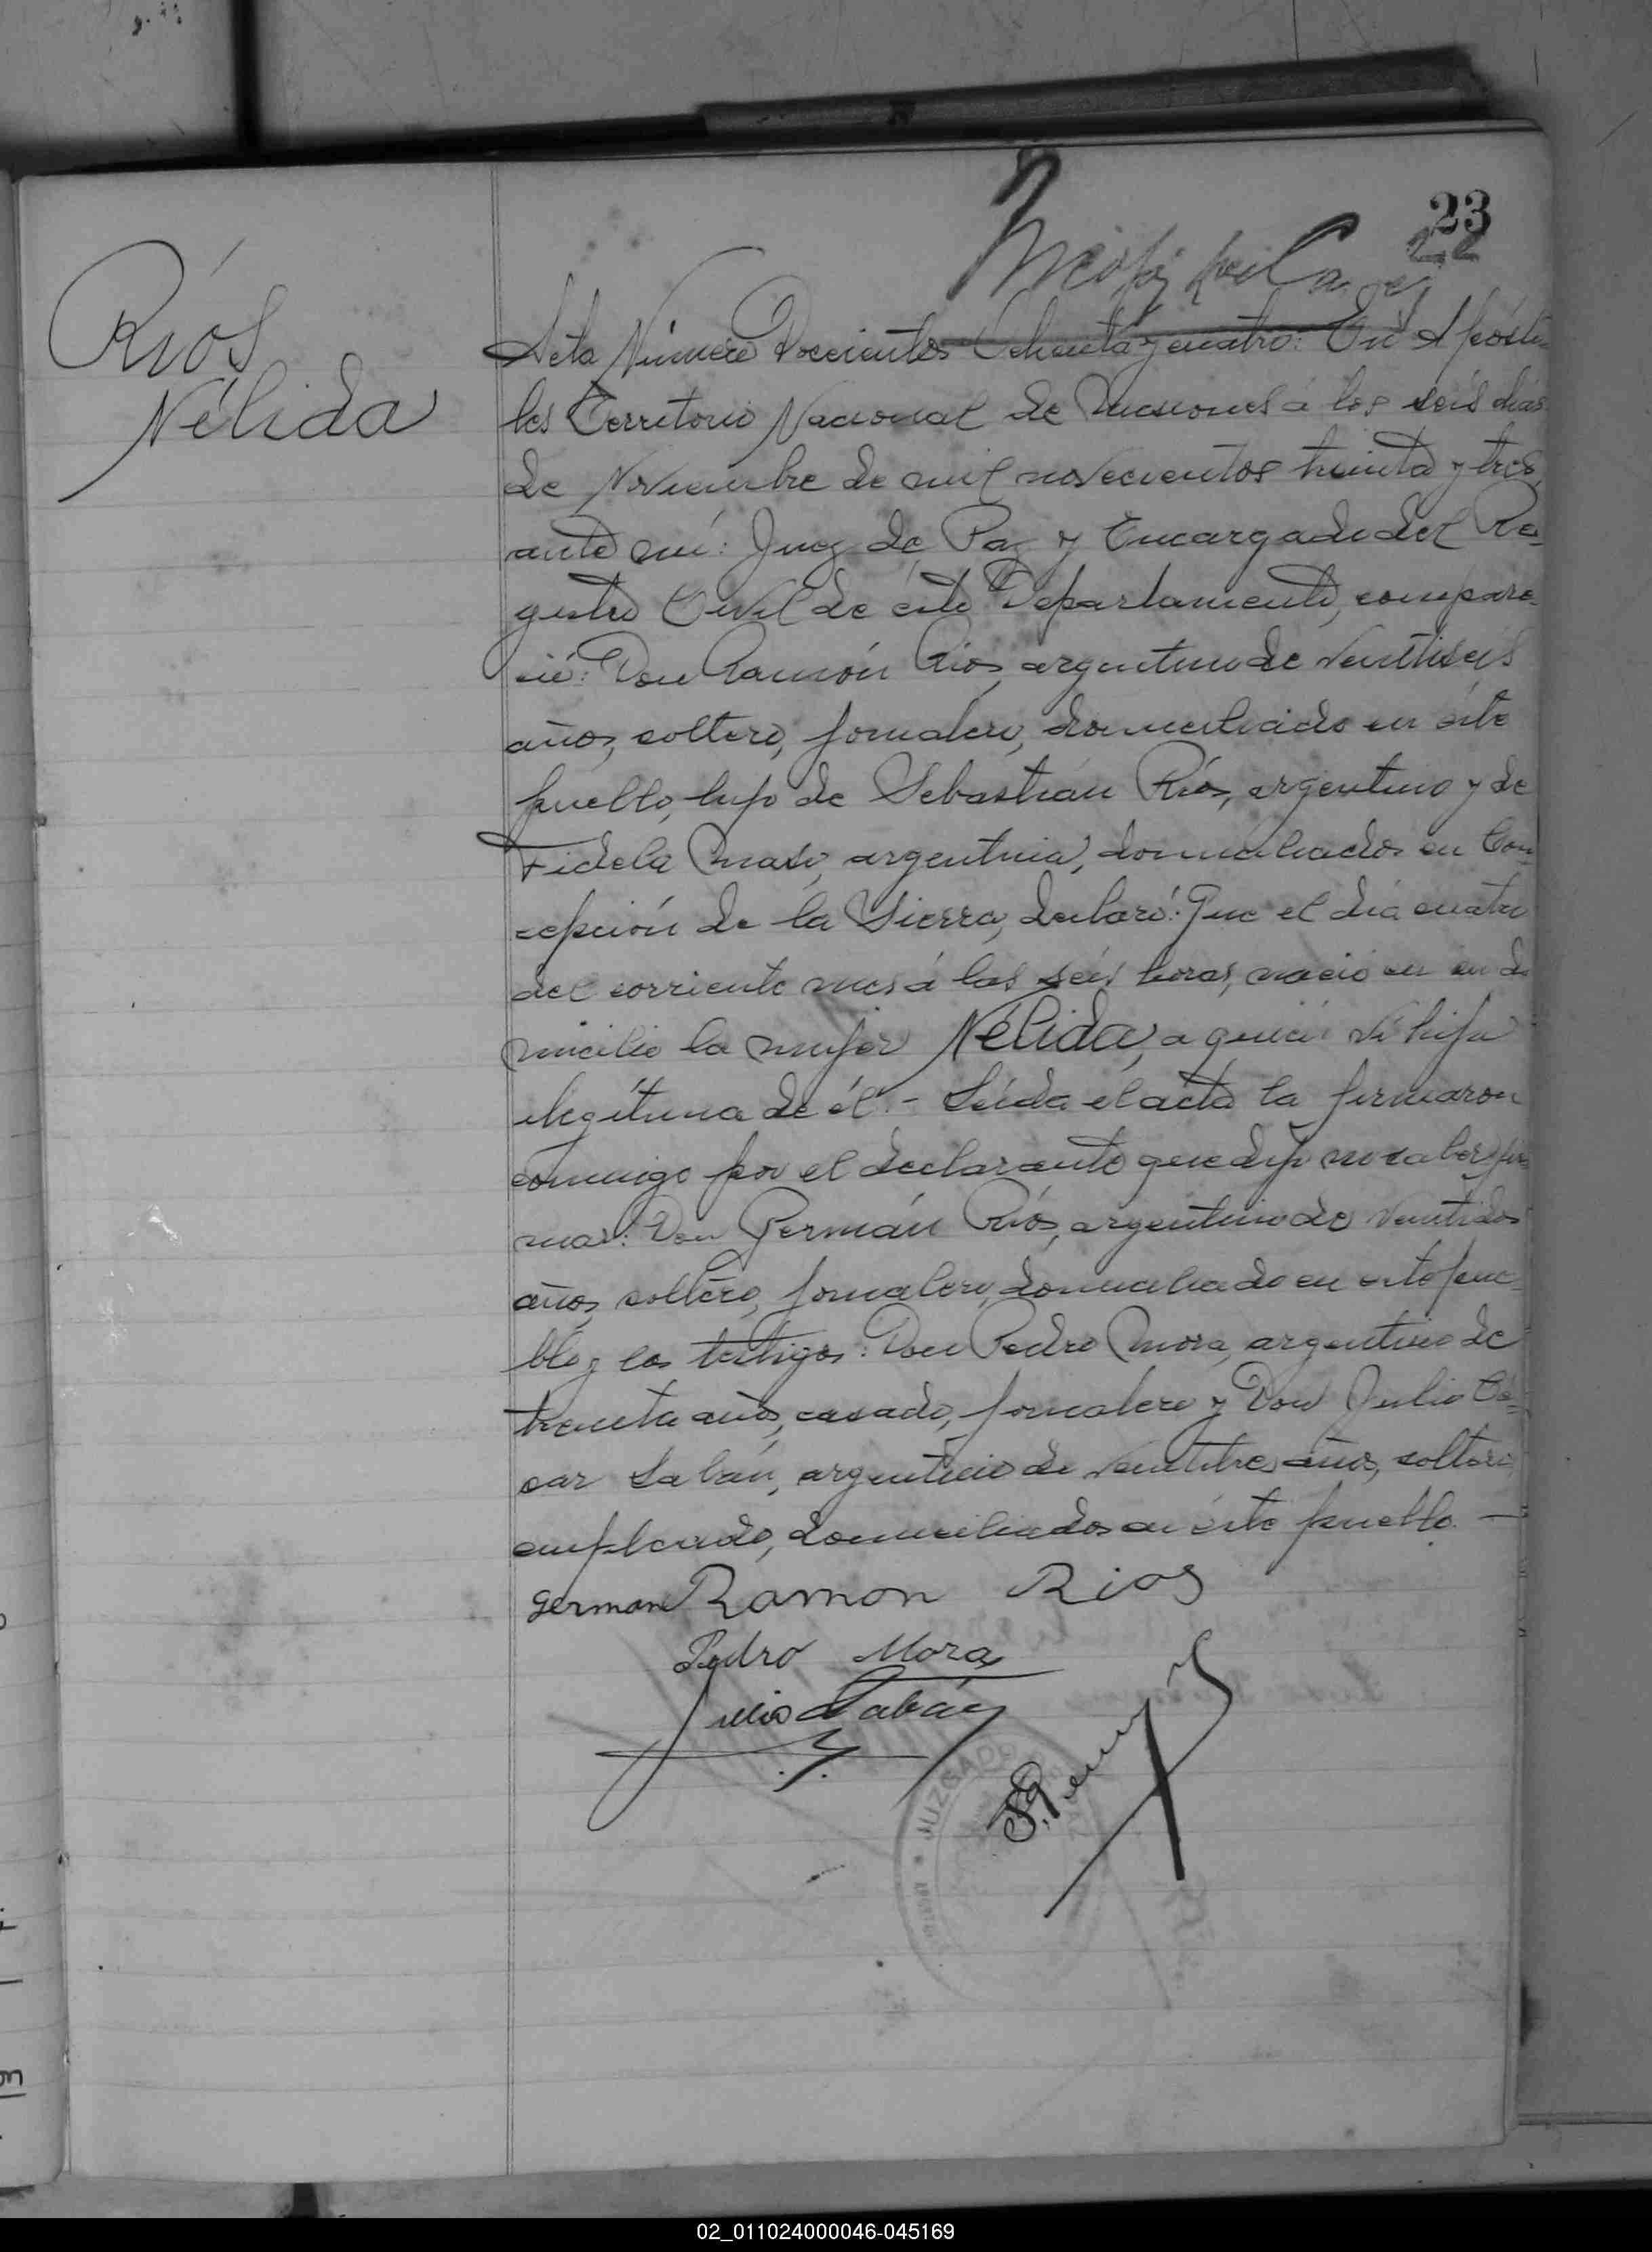 23
22
Ríos
Nélida
Acta Número Doscientos Ochenta y cuatro: En Apósto-
les Territorio Nacional de Misiones á los seis días
de Noviembre de mil novecientos treinta y tres,
ante mí: Juez de Paz y Encargado del Re-
gistro Civil de éste Departamento, compare-
ció: Don Ramón Ríos, argentino de veintiseis
años, soltero, jornalero, domiciliado en éste
pueblo, hijo de Sebastián Ríos, argentino y de
Fidela argentina, domiciliados en Con-
cepción de la Sierra, declaró: Que el día cuatro
del corriente mes á las seis horas, nació en su do
micilio la mujer Nélida, a quien vi hija
ilegítima de él.- Leída el acta la firmaron
conmigo por el declarante que dijo no saber fir-
mar: Don Germán Ríos, argentino de veintidos
años, soltero, jornalero, domiciliado en este pue-
blo y los testigos: Don Pedro Mora, argentino de
treinta años, casado, jornalero y Don Julio Cé-
sar Labán, argentino de veintitres años, soltero
empleado, domiciliados en éste pueblo. —
german Ramon Rios
Pedro Mora
Julio Labán
JUZGADO
02_011024000046-045169